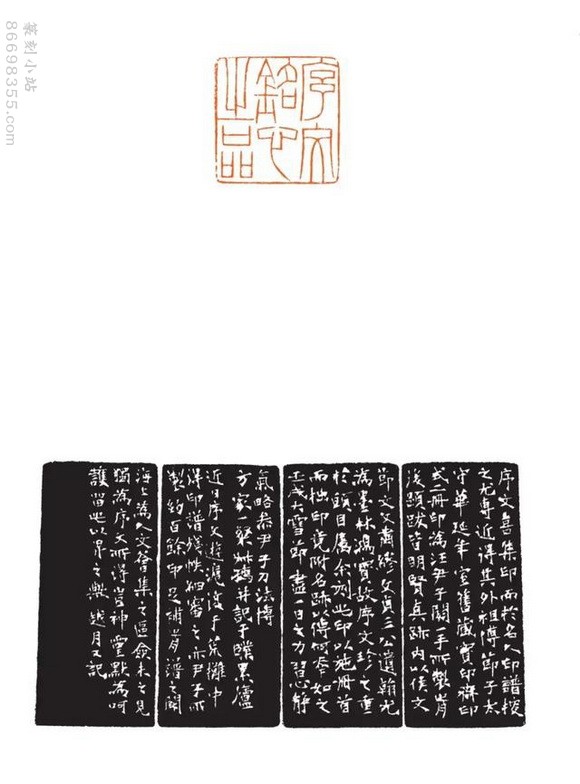 篆刻小站
86698355.com
序文
銘心
之品
序文喜集印而於名人印譜搜
之尤專近得其外祖博節子太
守華延年室舊藏寶印齋印
式二冊印為汪尹子關手所製前
後題跋皆明賢真跡內以侯文
節文文肅繆文貞三公遺翰尤
為墨林鴻寶故序文珍之重
於頭目屬余刻此印以施冊首
而拙印竟附名跡以傳何幸如之
壬戌大雪節盡一日之力習心靜
氣略參尹子刀法博
方家
近日序文遊滬復于荒攤中
得印譜殘帙細審之亦尹子所
製約百餘印足補前譜之闕
海上為人文薈集之區僉未之見
獨為序文所得豈神靈默為呵
護留此以畀之歟越月又記